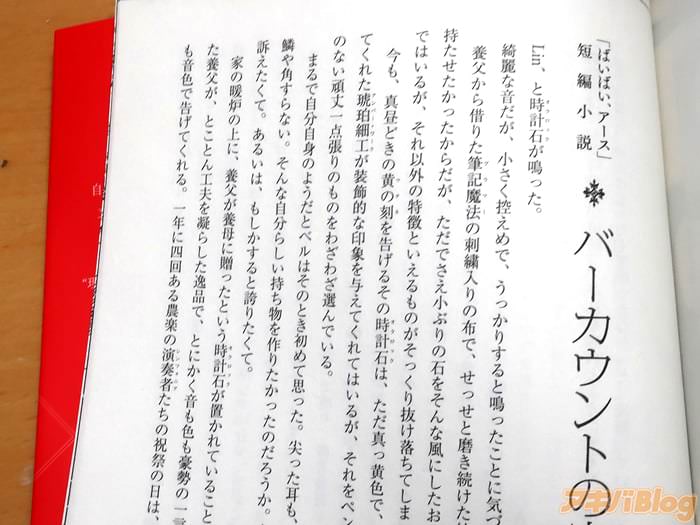 「ばいばい、アース」
短編小説
バーカウントの
Lin、と時計石が鳴った。
綺麗な音だが、小さく控えめで、うっかりすると鳴ったことに気づ
養父から借りた筆記魔法の刺繍入りの布で、せっせと磨き続けた
持たせたかったからだが、ただでさえ小ぶりの石をそんな風にしたお
ではいるが、それ以外の特徴といえるものがそっくり抜け落ちてしま
今も、真昼どきの黄の刻を告げるその時計石は、ただ真っ黄色で、
てくれた琥珀細工が装飾的な印象を与えてくれてはいるが、それをペン
のない頑丈一点張りのものをわざわざ選んでいる。
まるで自分自身のようだとベルはそのとき初めて思った。尖った耳も、
鱗や角すらない。そんな自分らしい持ち物を作りたかったのだろうか。
訴えたくて。あるいは、もしかすると誇りたくて。
家の暖炉の上に、養父が養母に贈ったという時計石が置かれていること
た養父が、とことん工夫を凝らした逸品で、とにかく音も色も豪勢の一言
も音色で告げてくれる。一年に四回ある農楽の演奏者たちの祝祭の日は、
自
アキバBlog